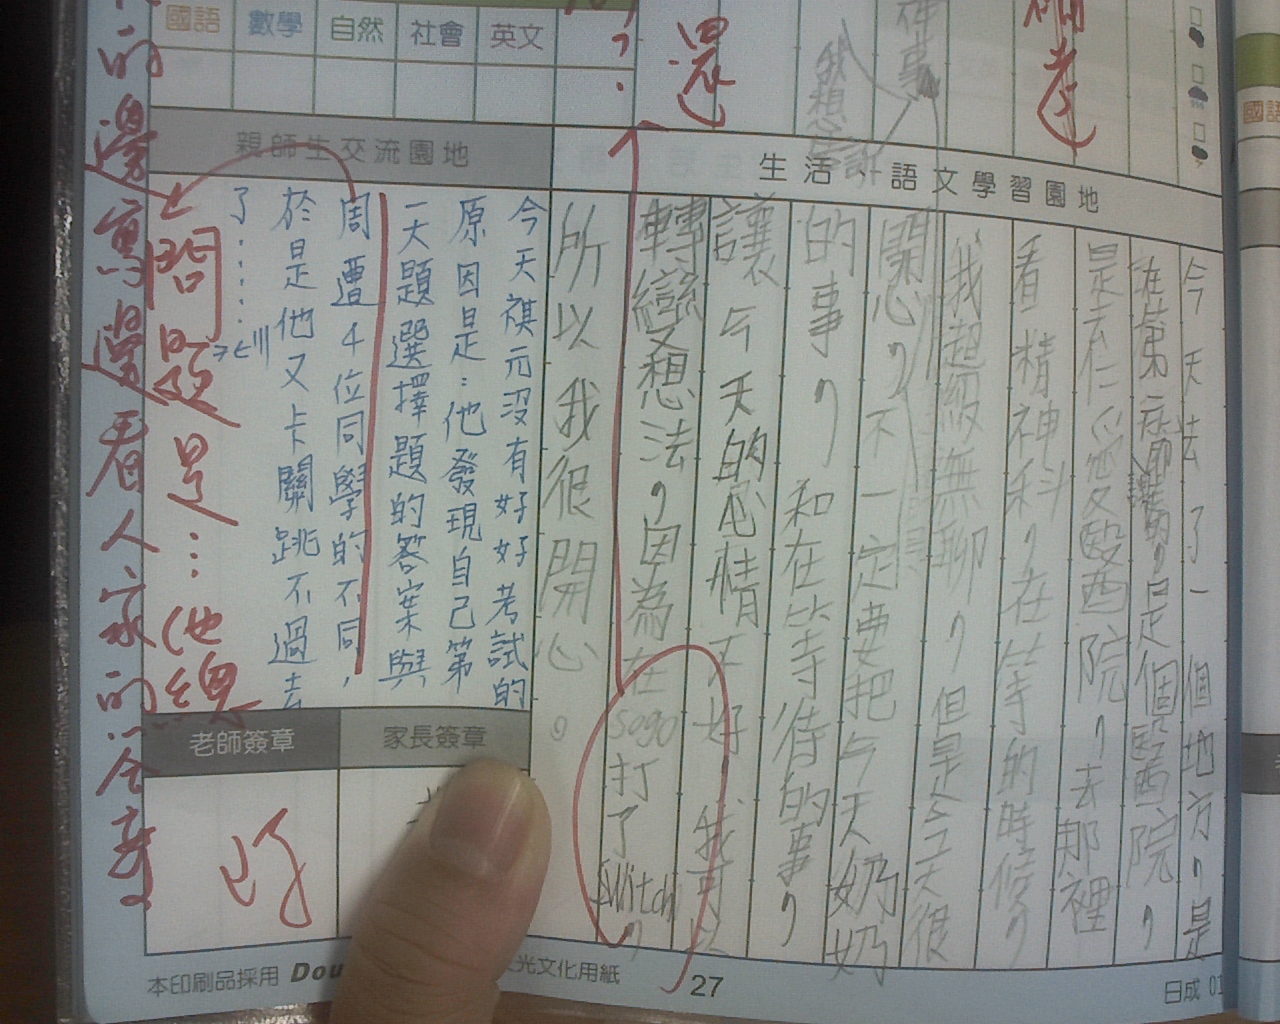 國語 數學 自然 社會 英文
還
備考
神事
我想
親師生交流園地
生活、語文學習園地
今天去了一個地方,是
誰第一
是去仁愛醫院,去那裡
看精神科,在等的時候,
我超級無聊,但是今天很
開心,不一定要把今天奶奶
的事,和在等待的事,
讓今天的心情不好,我可以
轉變想法,因為在sogo打了switch,
所以我很開心。
今天祺元沒有好好考試的
原因是:他發現自己第
一大題選擇題的答案與
周遭4位同學的不同,
於是他又卡關跳不過去
了……
問題是…他總
的邊寫邊看人家的答案
老師簽章
家長簽章
本印刷品採用 Dou
光文化用紙
27
日成
國語